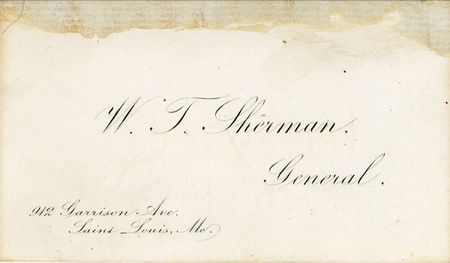 W. T. Sherman.
General.
912 Garrison Ave.
Saint Louis, Mo.